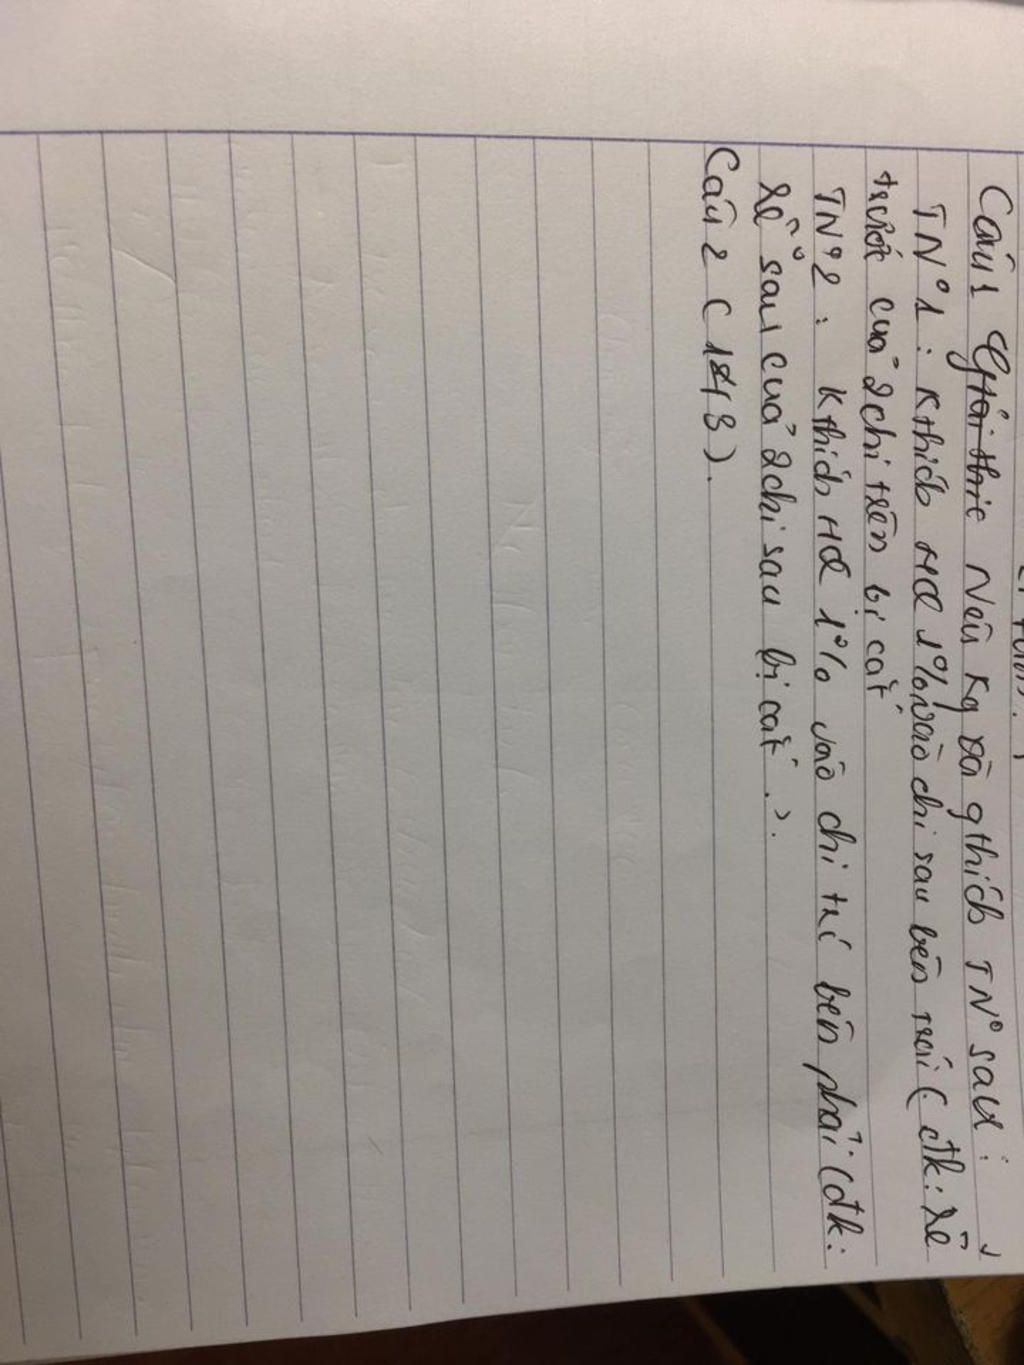 Câu 1 Nêu Kq và gthích TN° sau :
TN° 1 : Kthích HCl 1% vào chi sau bên trái ( đk : rễ
trước của 2 chi trên bị cắt
TN° 2 : Kthích HCl 1% vào chi trc bên phải (đk :
rễ sau của 2 chi sau bị cắt ).
Câu 2 ( 143 ).